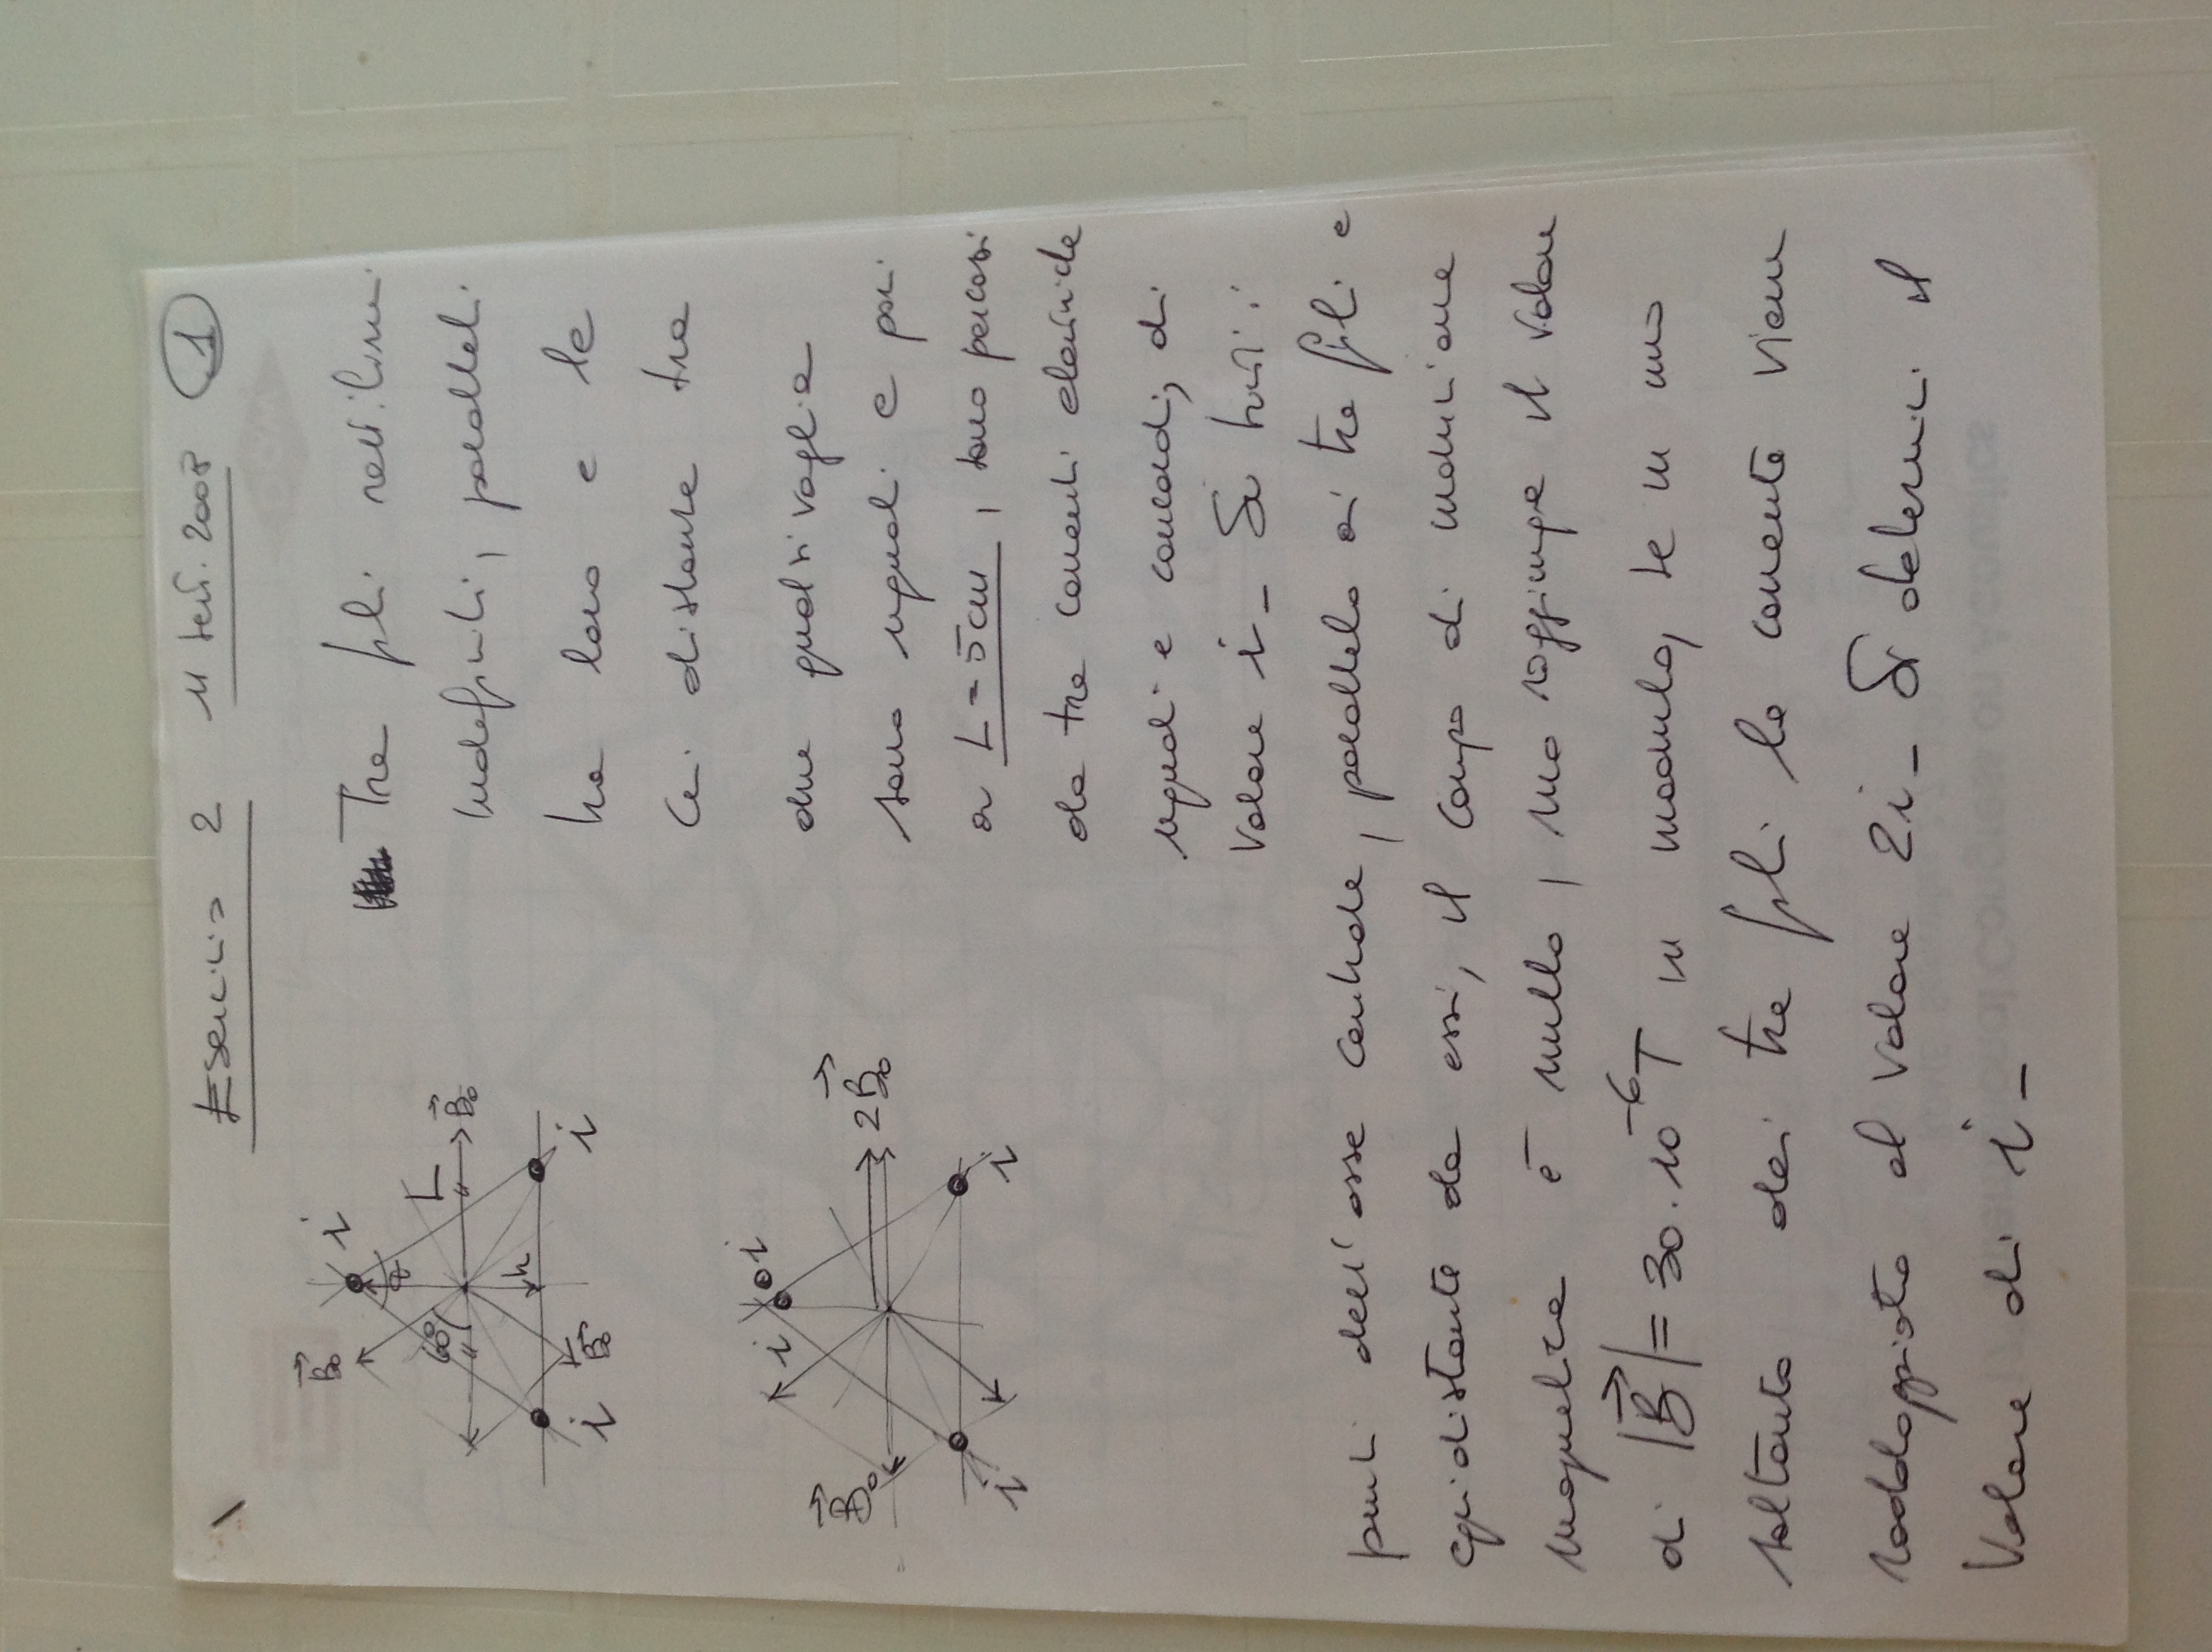 Esercizio 2 11 Sett. 2008 1
B₀ i
60° L B₀
h
i B₀ i
i i
B₀ 2B₀
i i
Tre fili rettilinei
indefiniti, paralleli
tra loro e le
cui distanze tra
due qualsivoglia
sono uguali e pari
a L = 5cm, sono percorsi
da tre correnti elettriche
uguali e concordi, di
valore i_ Su tutti i
punti dell'asse centrale, parallelo ai tre fili e
equidistante da essi, il campo di induzione
magnetica è nullo, ma raggiunge il valore
di |B| = 30·10⁻⁶T in modulo, se in uno
soltanto dei tre fili la corrente viene
raddoppiata al valore 2i_ Si determini il
valore di i_